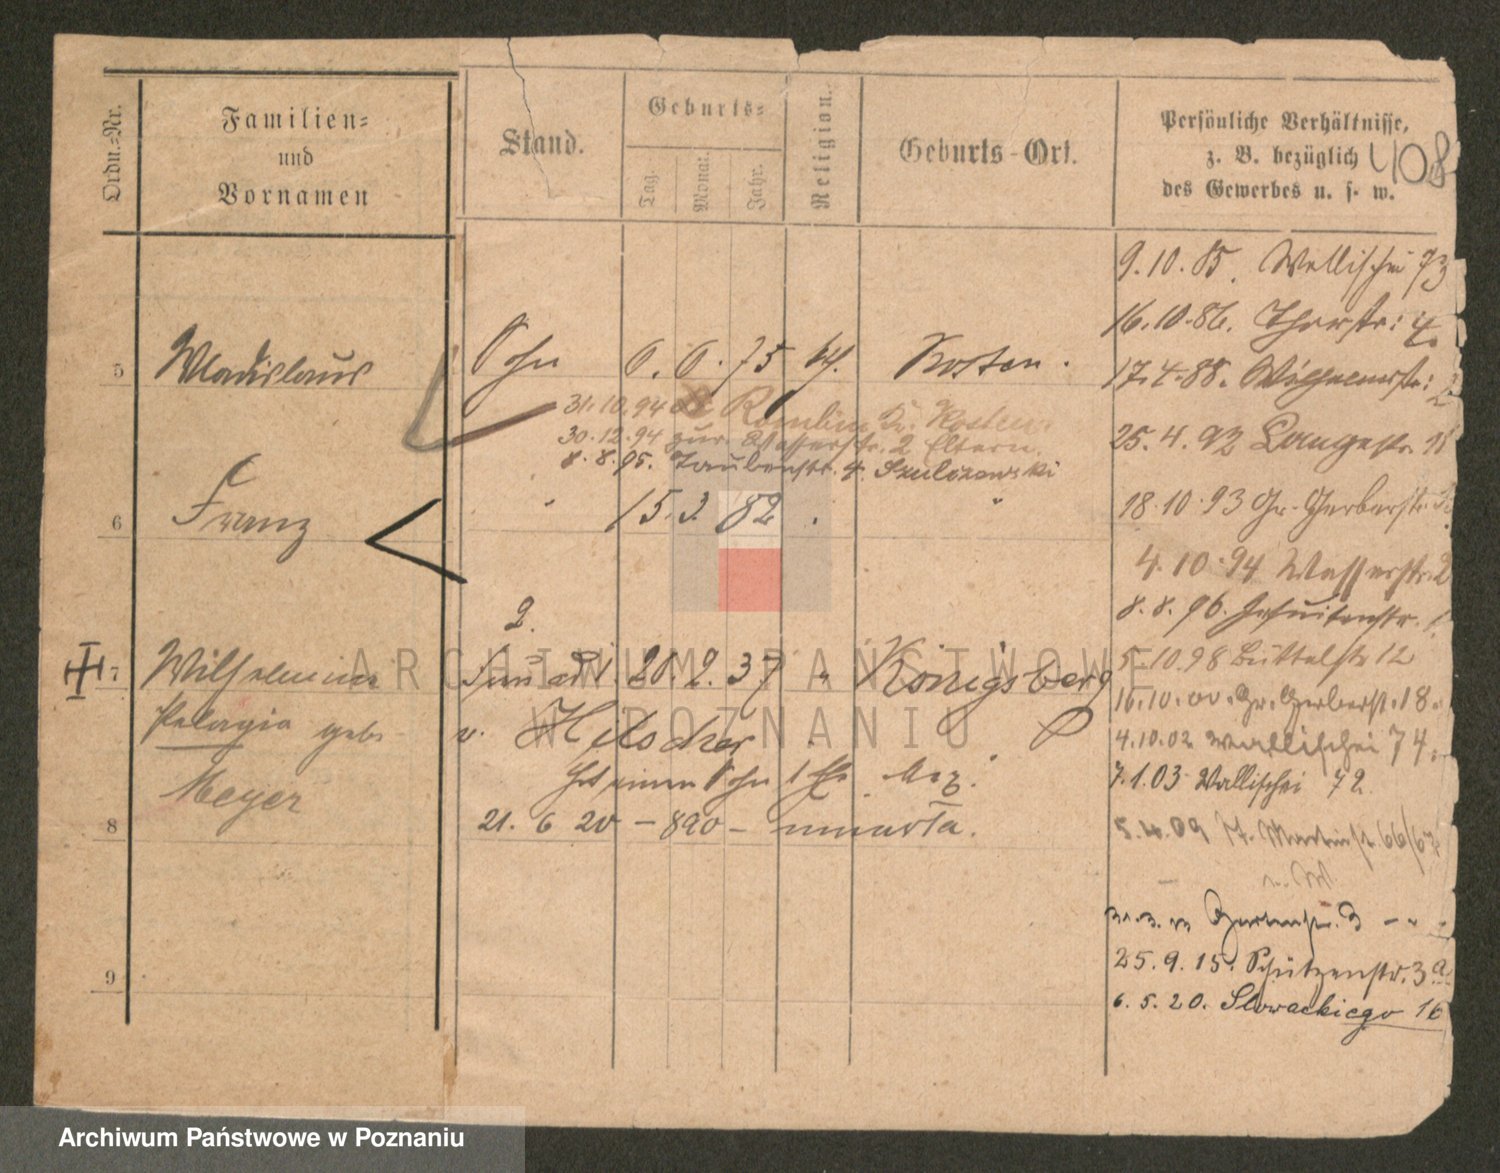 Ordn.-Nr.
Familien-
und
Vornamen
Stand.
Geburts-
Tag.
Monat.
Jahr.
Religion.
Geburts-Ort.
Persönliche Verhältnisse,
z. B. bezüglich
des Gewerbes u. s. w.
408
9.10.85. Wallischei 73
16.10.86. Thorstr: 4.
5 Wladislaus Sohn 6. 6. 75 kth. Kosten.
17.4.88. Wilhelmstr: 2
31.10.94 Kr. Kosten
25.4.92 Langestr. 11
30.12.94 zur. Wasserstr. 2 Eltern
8.8.95. Taubenstr. 4. Szulczewski
6 Franz " 15. 3. 82 . "
18.10.93 Gr. Gerberstr.
4.10.94 Wasserstr. 2
2.
8.8.96. Jesuitenstr.
7 Wilhelmine Frau d. 20. 2. 37 " Königsberg
5.10.98 Büttelstr 12
16.10.00. Gr. Gerberst. 18.
Pelagia geb. v. Hilscher
4.10.02 Wallischei 74.
hat einen Sohn
7.1.03 Wallischei 72.
Meyer
8 21. 6 20 – 890 – umarła.
5.4.09 St. Martinstr. 66/67
31.3.13 Gartenstr. 3
25.9.15. Schützenstr. 3a
9
6.5.20. Słowackiego 16
ARCHIWUM PAŃSTWOWE
W POZNANIU
Archiwum Państwowe w Poznaniu